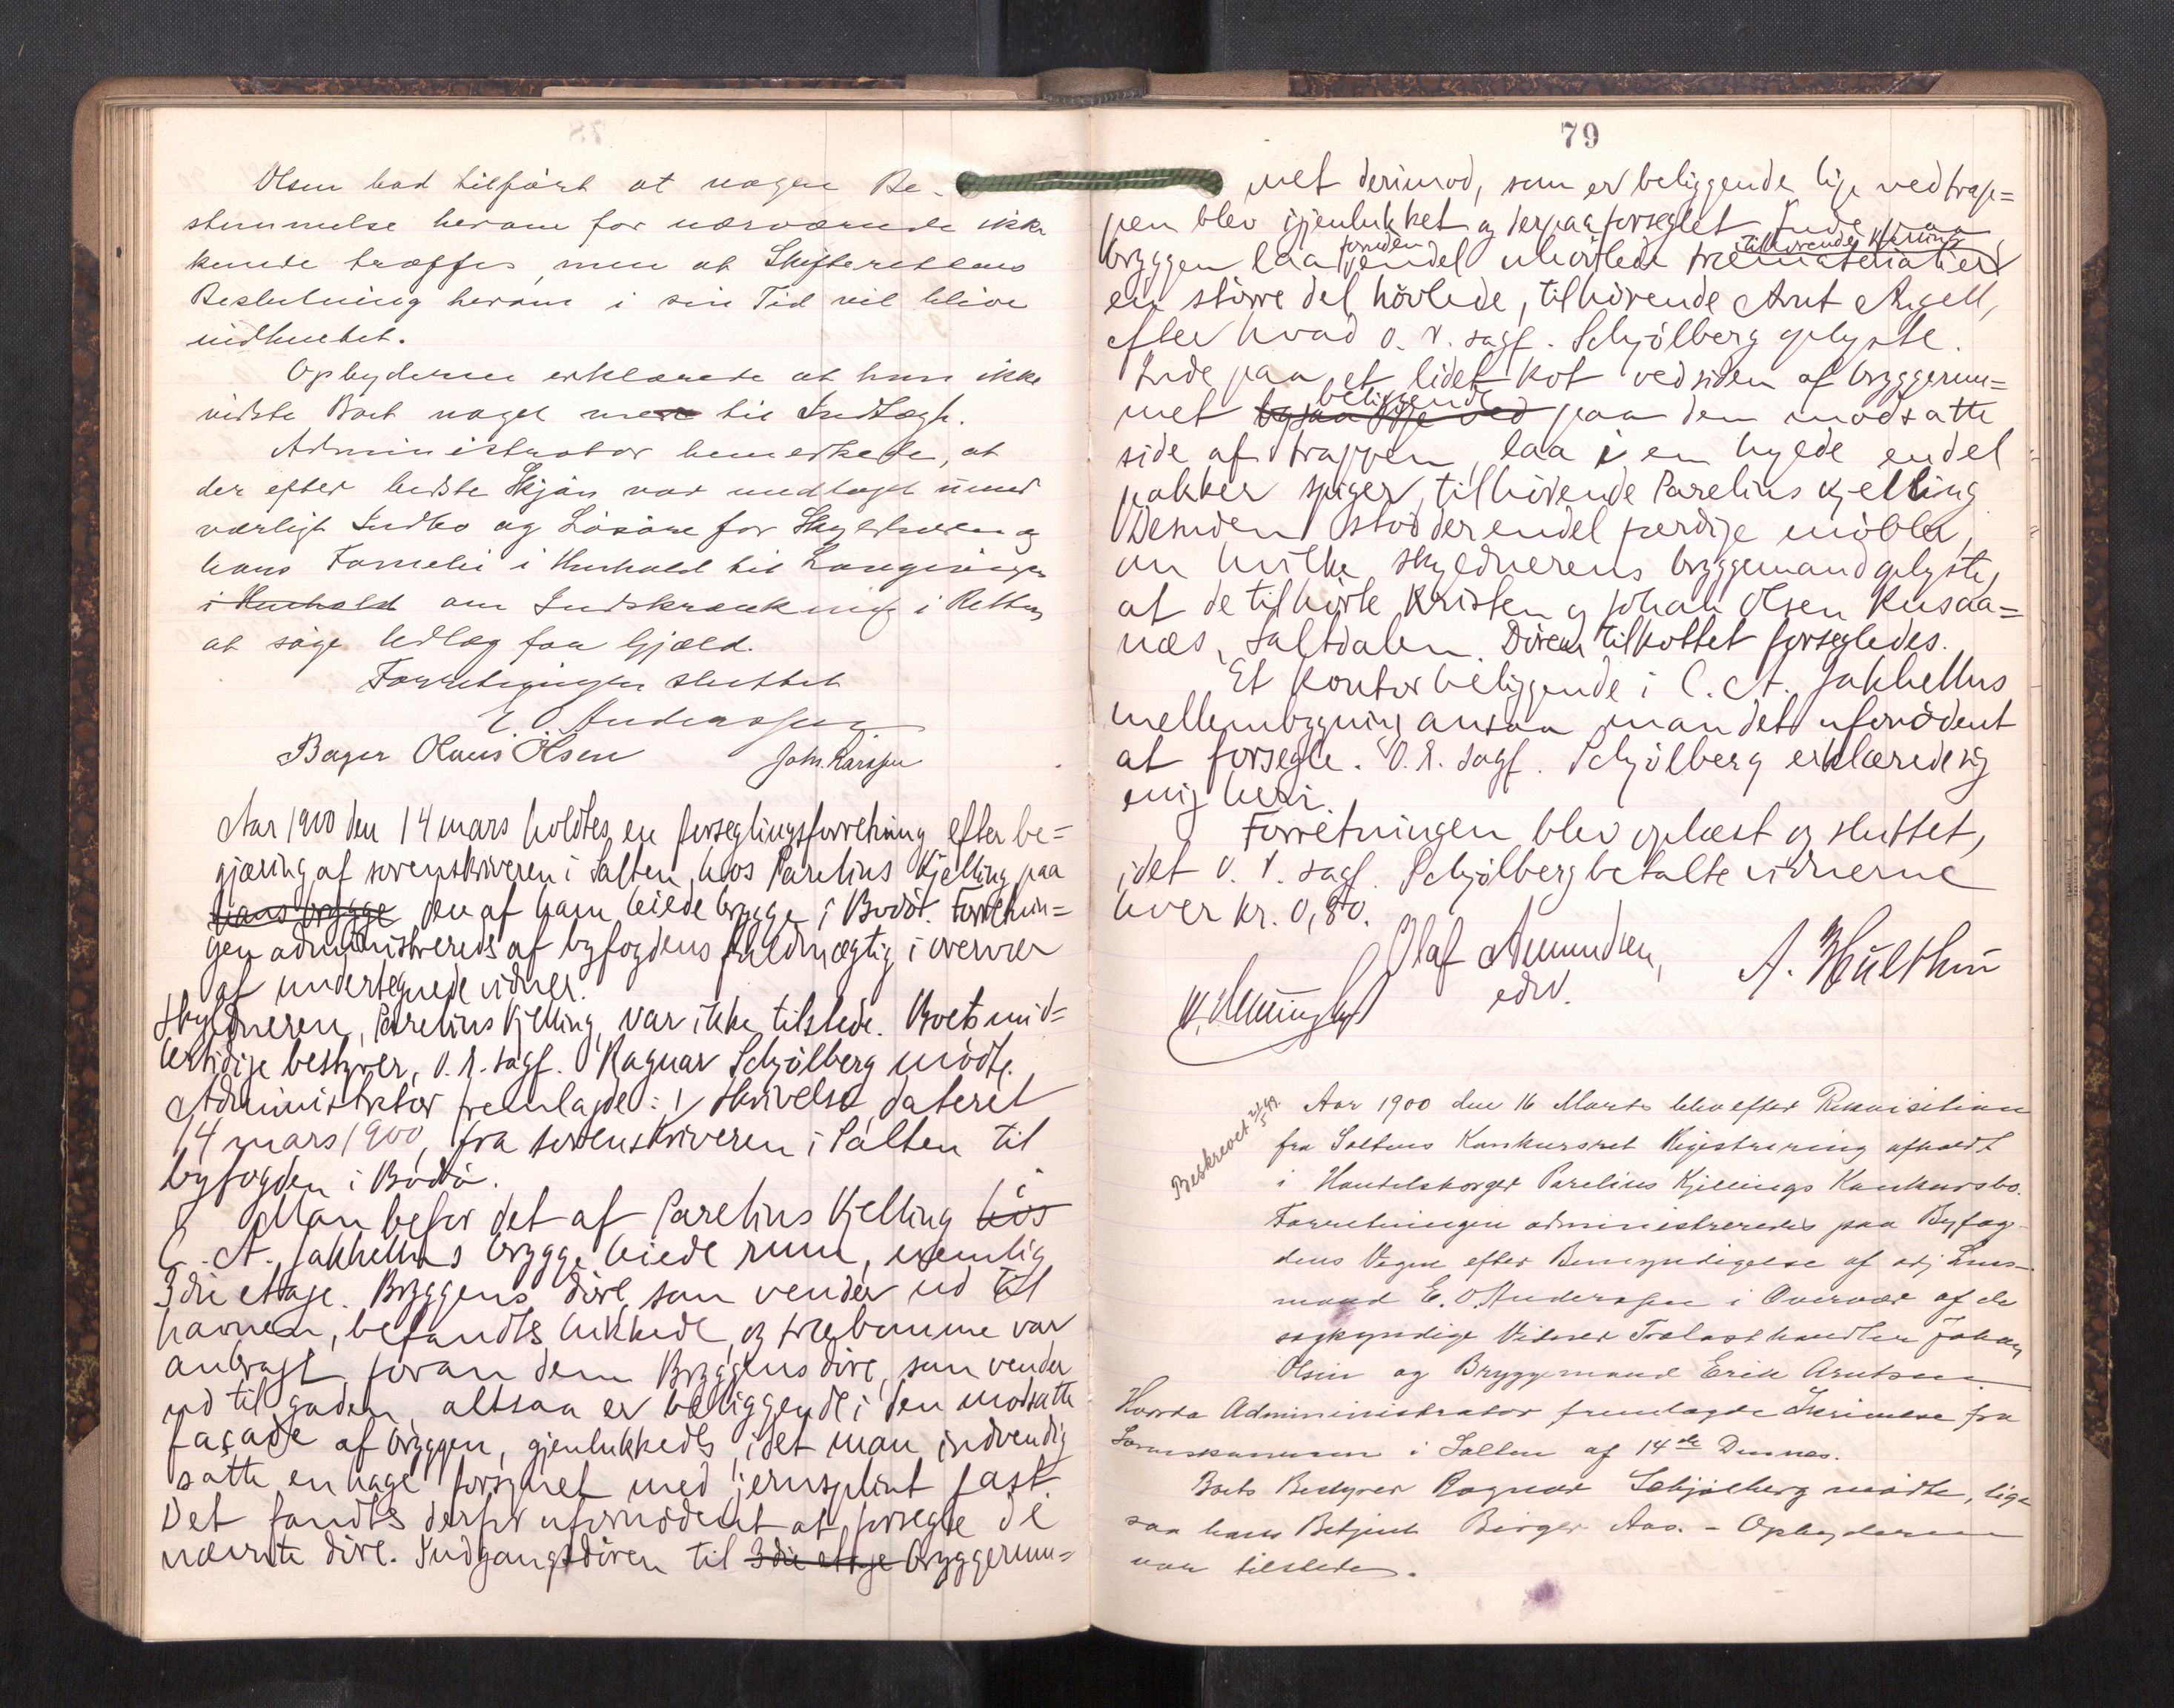 Olsen bad tilført at nogen Be-
stemmelse herom for nærværende ikke
kunde træffes, men at Skifterettens
Beslutning herom i sin Tid vil blive
indhentet.
Opbyderen erklærede at han ikke
vidste Boet noget mere til Indtægt.
Administrator bemerkede, at
der efter bedste Skjøn var undtaget
værligt Indbo og Løsøre for Skyldneren og
hans Familie i Henhold til Lovgivningen
i Henhold om Indskrænkning i Retten
at søge Udlæg for Gjæld.
Forretningen sluttet
E. O. Anderssen
Bager Olaus Olsen Joh. Larssen
Aar 1900 den 14 mars holdtes en forseglingsforretning efter be=
gjæring af sorenskriveren i Salten, hos Parelius Kjelling paa
hans brygge den af ham leiede brygge i Bodø. Forretnin=
gen administreredes af byfogdens fuldmægtig i overvær
af undertegnede vidner.
Skyldneren, Parelius Kjelling, var ikke tilstede. Boets mid=
lertidige bestyrer, o.r.sagf. Ragnar Schjølberg mødte.
Administrator fremlagde: 1/ skrivelse dateret
14 mars 1900, fra sorenskriveren i Salten til
byfogden i Bodø.
Man befor det af Parelius Kjelling hos
C. A. Jakhellns brygge leiede rum, nemlig
3die etage. Bryggens døre, som vender ud til
havnen, befandtes lukkede, og træbomme var
anbragt foran dem. Bryggens døre, som vender
ud til gaden, altsaa er beliggende i den modsatte
façade af bryggen, gjenlukkedes, idet man indvendig
satte en hage forsynet med jernsplint fast.
Det fandtes derfor ufornødent at forsegle de
nævnte døre. Indgangsdøren til 3die etage bryggerum=
79
met derimod, som er beliggende lige ved trap=
pen blev igjenlukket og derpaa forseglet. Inde paa
bryggen laa foruden endel uhøvlede træmaterialier tilhørende Kjelling
en større del høvlede, tilhørende Arnt Angell,
efter hvad o.r.sagf. Schjølberg oplyste.
Inde paa et lidet kot ved siden af bryggerum=
met ligesaa lige ved beliggende paa den modsatte
side af trappen, laa i en hylde endel
pakker spiger, tilhørende Parelius Kjelling
Desuden stod der endel færdige møbler,
om hvilke skyldnerens bryggemand oplyste,
at de tilhørte Kristen og Johan Olsen Rusaa=
næs, Saltdalen. Døren til kottet forsegledes.
Et kontor beliggende i C. A. Jakhellns
mellembygning ansaa man det ufornødent
at forsegle. O.r.sagf. Schjølberg erklærede sig
enig heri.
Forretningen blev oplæst og sluttet,
idet o.r.sagf. Schjølberg betalte vidnerne
hver kr. 0,80.
Olaf Amundsen, A. Hulthin
edsv.
Beskrevet 2/5 99.
Aar 1900 den 16 Marts blev efter Rekvisition
fra Saltens Konkursret Registrering afholdt
i Handelsborger Parelius Kjellings Konkursbo.
Forretningen administreredes paa Byfog-
dens Vegne efter Bemyndigelse af adj. Lens-
mand E. O. Anderssen i Overvær af de
sagkyndige Vidner Trælasthandler Johan
Olsen og Bryggemand Erik Arntsen
Hvorda Admininistrator fremlagde Skrivelse fra
Sorenskriveren i Salten af 14de Dennes.
Boets Bestyrer Ragnar Schjølberg mødte, lige
saa hans Betjent Birger Aas. - Opbyderen
var tilstede.